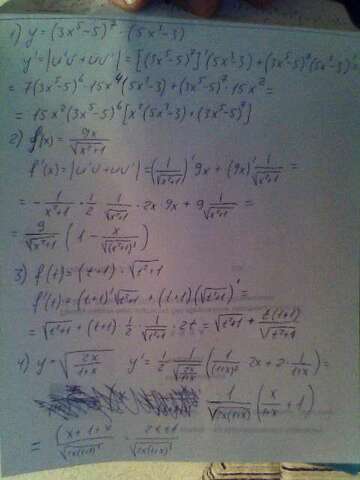 1) y = (3x⁵-5)⁷ · (5x³-3)
y' = |u'v + uv'| = [(3x⁵-5)⁷]'(5x³-3) + (3x⁵-5)⁷(5x³-3)' =
= 7(3x⁵-5)⁶ · 15x⁴(5x³-3) + (3x⁵-5)⁷ · 15x² =
= 15x²(3x⁵-5)⁶[x²(5x³-3) + (3x⁵-5)⁷]
2) f(x) = 9x/√(x²+1)
f'(x) = |u'v + uv'| = (1/√(x²+1))' 9x + (9x)' 1/√(x²+1) =
= - 1/(x²+1) · 1/2 · 1/√(x²+1) · 2x · 9x + 9 1/√(x²+1) =
= 9/√(x²+1) (1 - x/√(x²+1))
3) f(t) = (t+1) · √(t²+1)
f'(t) = (t+1)' √(t²+1) + (t+1)(√(t²+1))' =
= √(t²+1) + (t+1) · 1/2 · 1/√(t²+1) · 2t = √(t²+1) + t(t+1)/√(t²+1)
4) y = √(2x/(1+x)) y' = 1/2 · 1/√(2x/(1+x)) (1/(1+x)² · 2x + 2 · 1/(1+x)) =
1/√(2x(1+x)) (x/(1+x) + 1)
= (x+1+x)/√(2x(1+x)³) = (2x+1)/√(2x(1+x)³)